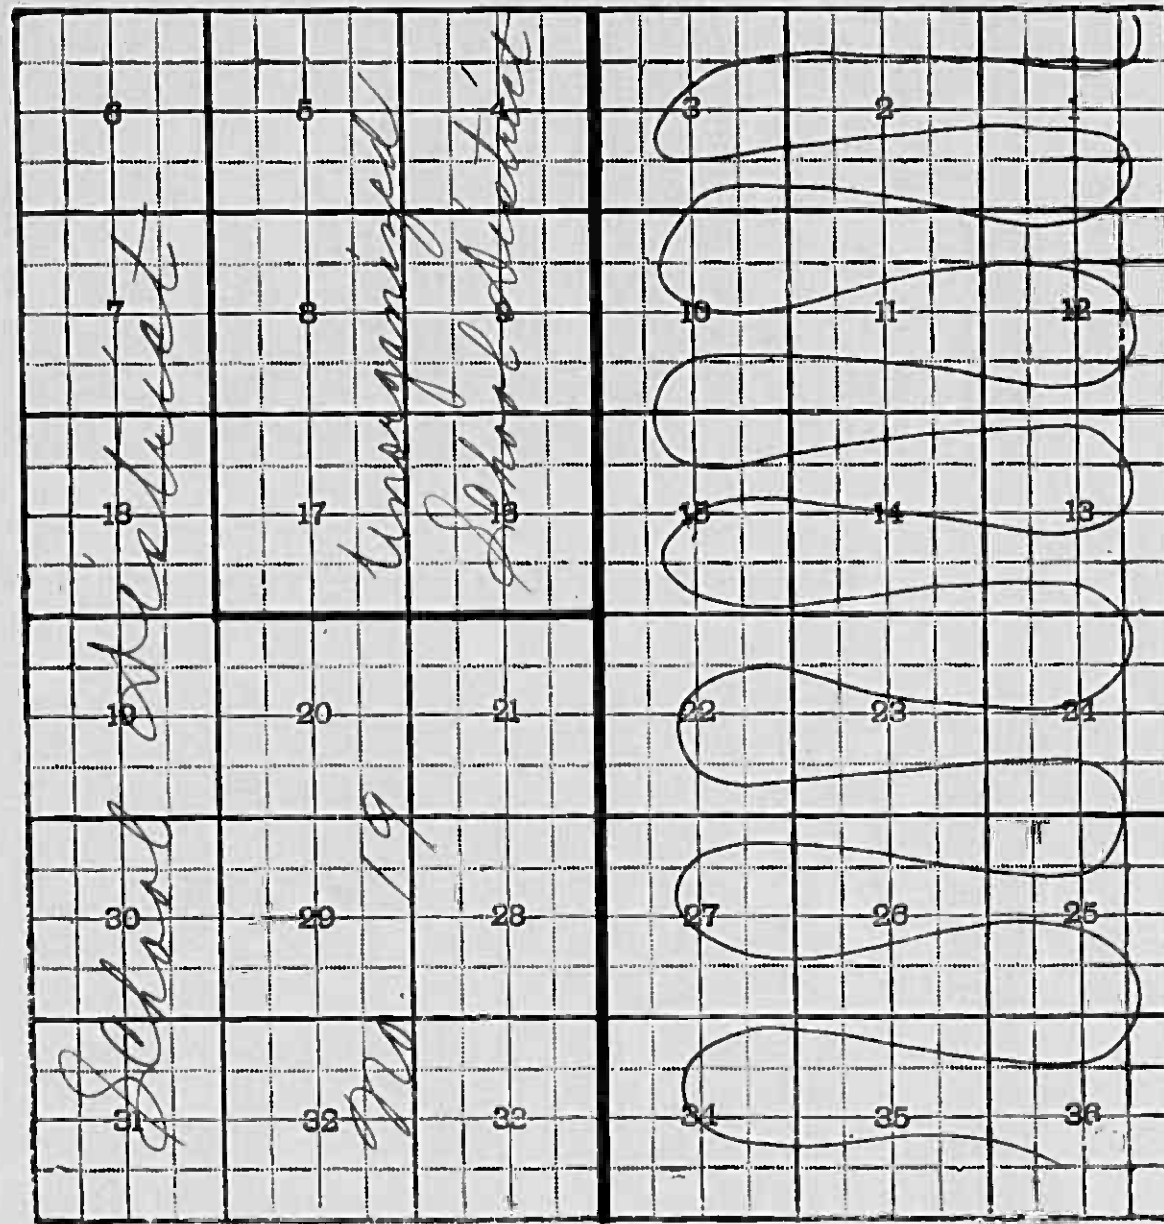 6 5 4 3 2 1
7 8 9 10 11 12
18 17 16 15 14 13
19 20 21 22 23 24
30 29 28 27 26 25
31 32 33 34 35 36
School District
No 19
Unorganized
School District